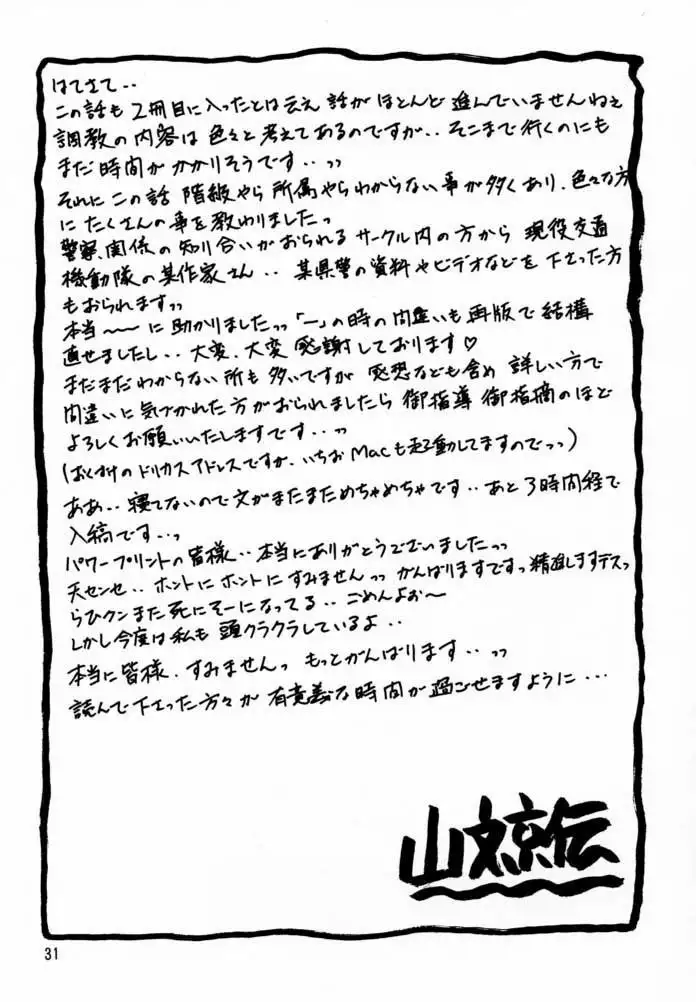 はてさて‥
この話も2冊目に入ったとは云え 話が ほとんど 進んでいませんねぇ
調教の内容は 色々と 考えてあるのですが‥ そこまで行くのにも
まだ 時間が かかりそうです‥っっ
それに この話 階級やら 所属やら わからない事が多くあり、色々な方
に たくさんの事を教わりましたっ
警察関係の知り合いがおられる サークル内の方から 現役交通
機動隊の某作家さん‥ 某県警の資料やビデオなどを 下さった方
もおられますっっ
本当〜〜に 助かりましたっっ 「一」の時の間違いも 再版で 結構
直せましたし‥ 大変、大変 感謝しております♡
まだまだわからない所も 多いですが 感想なども含め 詳しい方で
間違いに気づかれた方がおられましたら 御指導 御指摘のほど
よろしくお願いいたしますです‥っ
(おくづけのドリカスアドレスですが、いちお Macも起動してますのでっっ)
ああ‥ 寝てないので 文がまたまためちゃめちゃです‥ あと3時間経で
入稿です‥っ
パワープリントの皆様‥ 本当にありがとうございましたっっ
天センセ‥ ホントに ホントに すみませんっっ がんばりますですっ 精進しますデスっ
らひクンまた死にそーになってる‥ ごめんよぉ〜
しかし今度は私も 頭クラクラしているよ‥
本当に皆様、すみませんっ もっとがんばります‥っっ
読んで下さった方々が 有意義な時間が 過ごせますように…
山文京伝
31